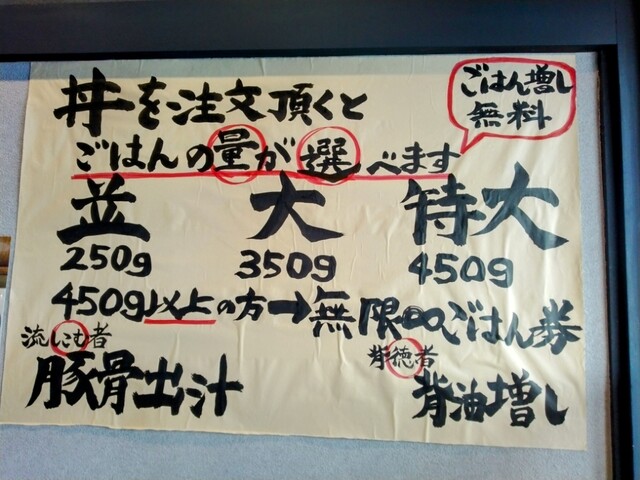 丼を注文頂くと
ごはんの量が選べます
ごはん増し
無料
並 大 特大
250g 350g 450g
450g以上の方→無限∞ごはん券
流しこむ者
豚骨出汁
背徳者
背油増し